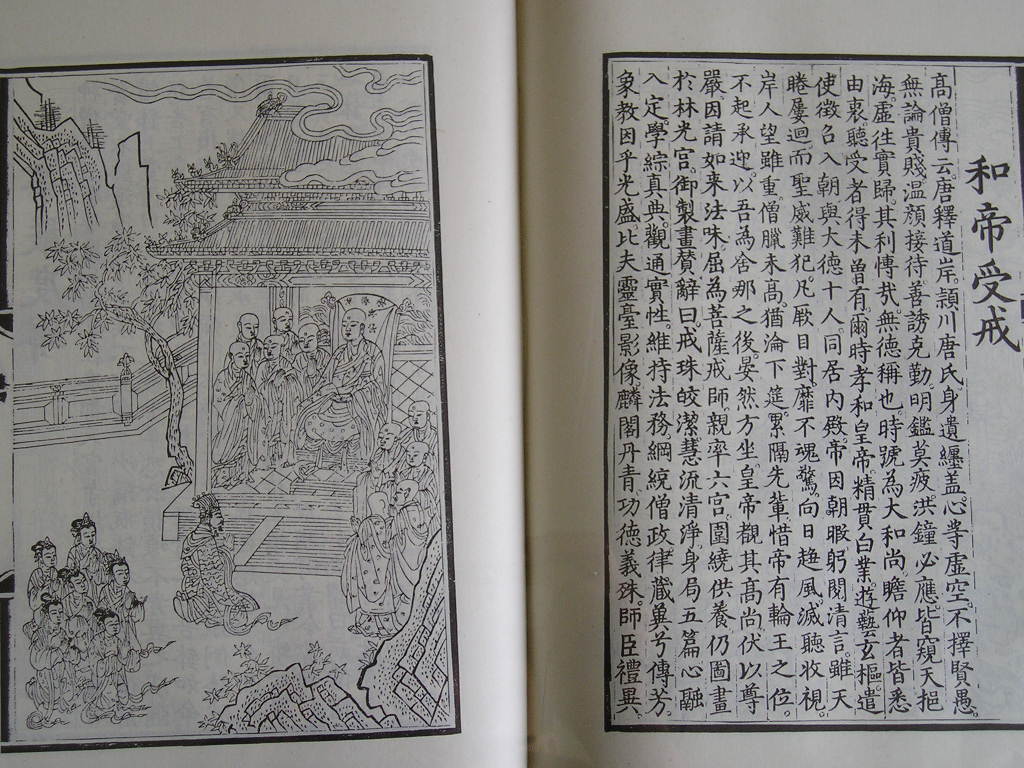 和帝受戒
高僧傳云。唐釋道岸。頴川唐氏。身遺纏蓋。心等虛空。不擇賢愚。
無論貴賤。温顏接待。善誘克勤。明鑑莫疲。洪鐘必應。皆窺天挹
海。虛往實歸。其利愽哉。無德稱也。時號為大和尚。瞻仰者皆悉
由衷。聽受者得未曾有。爾時孝和皇帝。精貫白業。遊藝玄樞。遣
使徵召入朝。與大德十人。同居內殿。帝因朝暇。躬閱清言。雖天
睠屢迴。而聖威難犯。凡厥目對。靡不魂驚。向日趍風。滅聽收視。
岸人望雖重。僧臘未高。猶淪下筵。累隔先輩。惜帝有輪王之位。
不起承迎。以吾為舍那之後。晏然方坐。皇帝覩其高尚。伏以尊
嚴。因請如來法味。屈為菩薩戒師。親率六宮。圍繞供養。仍圖畫
於林光宮。御製畫贊。辭曰。戒珠皎潔。慧流清淨。身局五篇。心融
入定。學綜真典。觀通實性。維持法務。綱統僧政。律藏兾兮傳芳。
象教因乎光盛。比夫靈臺影像。麟閣丹青。功德義殊。師臣禮異。